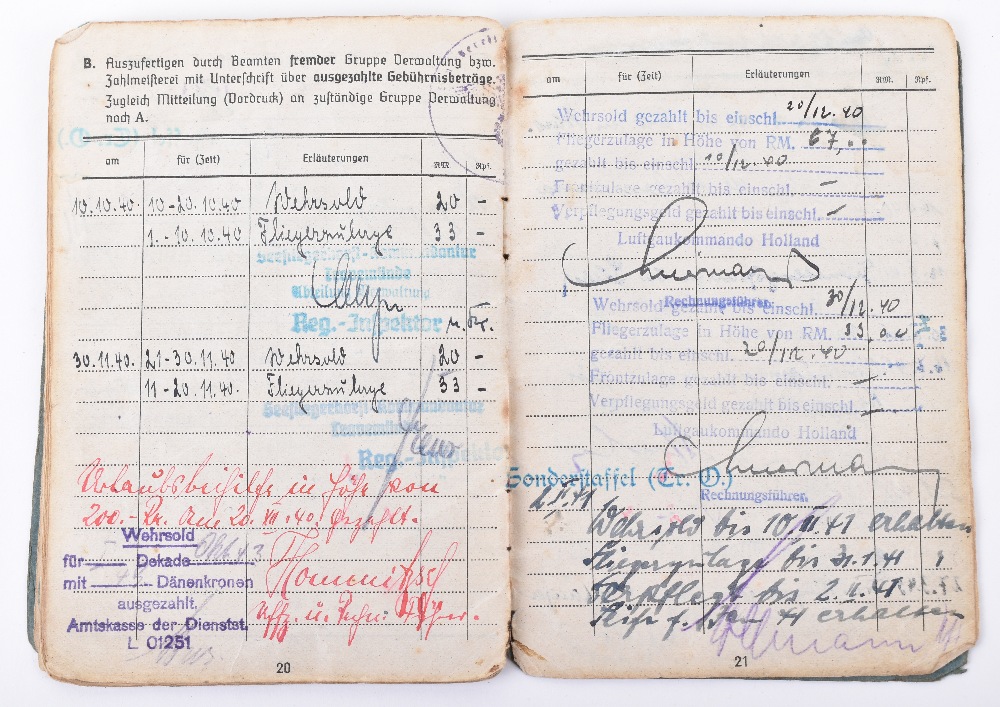 B. Auszufertigen durch Beamten fremder Gruppe Verwaltung bzw.
Zahlmeisterei mit Unterschrift über ausgezahlte Gebührnisbeträge.
Zugleich Mitteilung (Vordruck) an zuständige Gruppe Verwaltung
nach A.
am für (Zeit) Erläuterungen RM. Rpf.
10.10.40 10-20.10.40 Wehrsold 20 -
1.-10.10.40 Fliegerzulage 33 -
Abteilung Verwaltung
Reg.-Inspektor
30.11.40. 21-30.11.40 Wehrsold 20 -
11-20.11.40. Fliegerzulage 33 -
Reg.-Inspektor
Urlaubsbeihilfe in Höhe von
200.- Kr. am 20.XII.40. gezahlt.
Wehrsold
für Dekade
mit 75 Dänenkronen
ausgezahlt.
Amtskasse der Dienstst.
L 01251
20
am für (Zeit) Erläuterungen RM. Rpf.
Wehrsold gezahlt bis einschl. 20/12.40
Fliegerzulage in Höhe von RM. 67,..
gezahlt bis einschl. 10/12.40
Frontzulage gezahlt bis einschl. —
Verpflegungsgeld gezahlt bis einschl. —
Luftgaukommando Holland
Rechnungsführer.
Wehrsold gezahlt bis einschl. 30/12.40
Fliegerzulage in Höhe von RM. 33.00
gezahlt bis einschl. 20/12.40
Frontzulage gezahlt bis einschl. —
Verpflegungsgeld gezahlt bis einschl. —
Luftgaukommando Holland
Sonderstaffel (Tr. O.)
Rechnungsführer.
2.II.41 Wehrsold bis 10.II.41 erhalten
Fliegerzulage bis 31.1.41 "
Verpflegt bis 2.II.41
41 erhalten
21